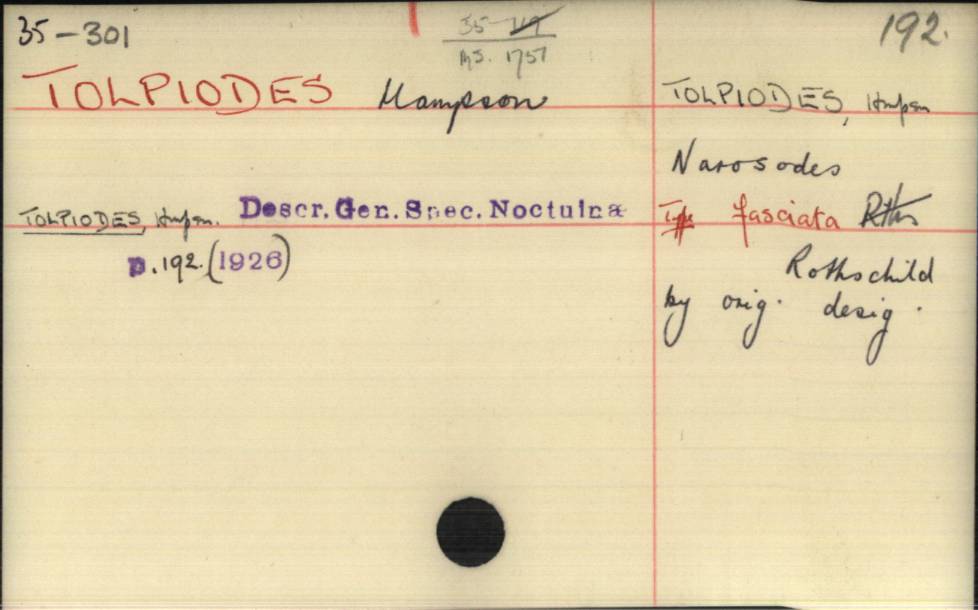 35-301
35-119
MS. 1757
192.
TOLPIODES Hampson
TOLPIODES, Hmpsn. Descr. Gen. Spec. Noctuinæ
p.192.(1926)
TOLPIODES, Hmpsn
Narosodes
Type fasciata Rths
Rothschild
by orig. desig.